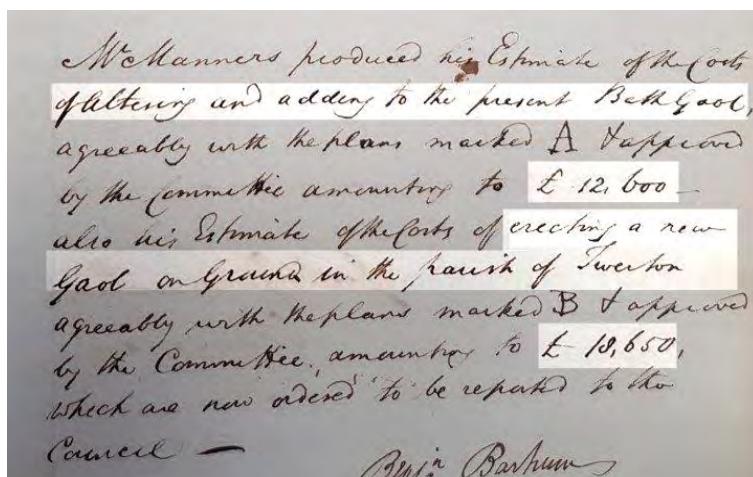 Mr Manners produced his Estimate of the Costs
of altering and adding to the present Bath Gaol,
agreeably with the plans marked A & approved
by the Committee amounting to £ 12,600 –
also his Estimate of the Costs of erecting a new
Gaol on Ground in the parish of Twerton
agreeably with the plans marked B & approved
by the Committee, amounting to £ 18,650,
which are now ordered to be reported to the
Council —
Benjn Bartrum